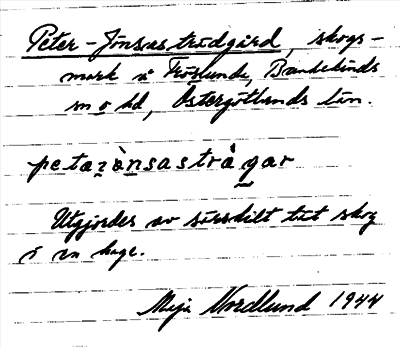 Peter-Jönsas trädgård, skogs-
mark i Fröslunda, Bankekinds
sn o hd, Östergötlands län.
petarànsastràgar
Utgjordes av särskilt tät skog
i en hage.
Maja Nordlund 1944